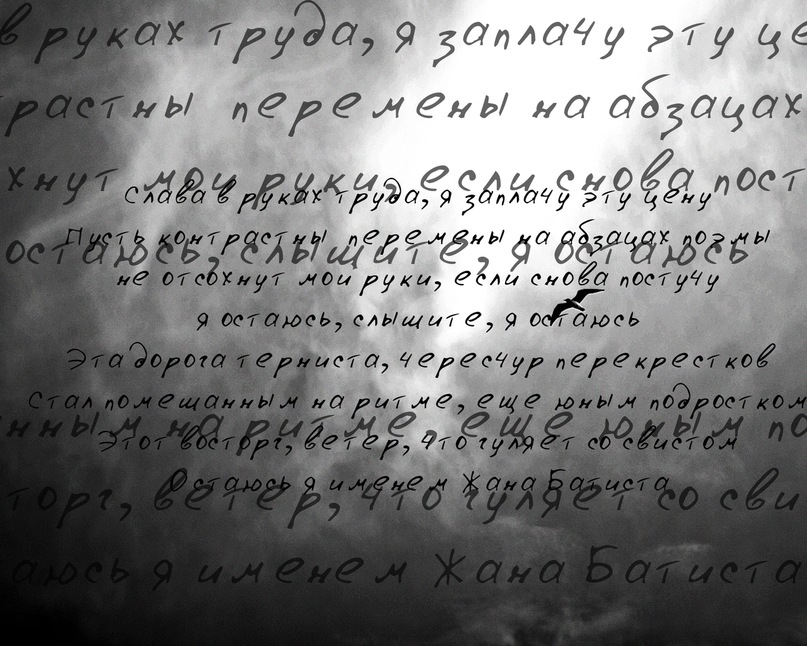 в руках труда, я заплачу эту це
трастны перемены на абзацах
хнут мои руки, если снова пост
Слава в руках труда, я заплачу эту цену
Пусть контрастны перемены на абзацах поэмы
остаюсь, слышите, я остаюсь
не отсохнут мои руки, если снова постучу
я остаюсь, слышите, я остаюсь
Эта дорога терниста, чересчур перекрестков
Стал помешанным на ритме, еще юным подростком
нным на ритме, еще юным по
Этот восторг, ветер, что гуляет со свистом
Остаюсь я именем Жана Батиста
торг, ветер, что гуляет со сви
аюсь я именем Жана Батиста